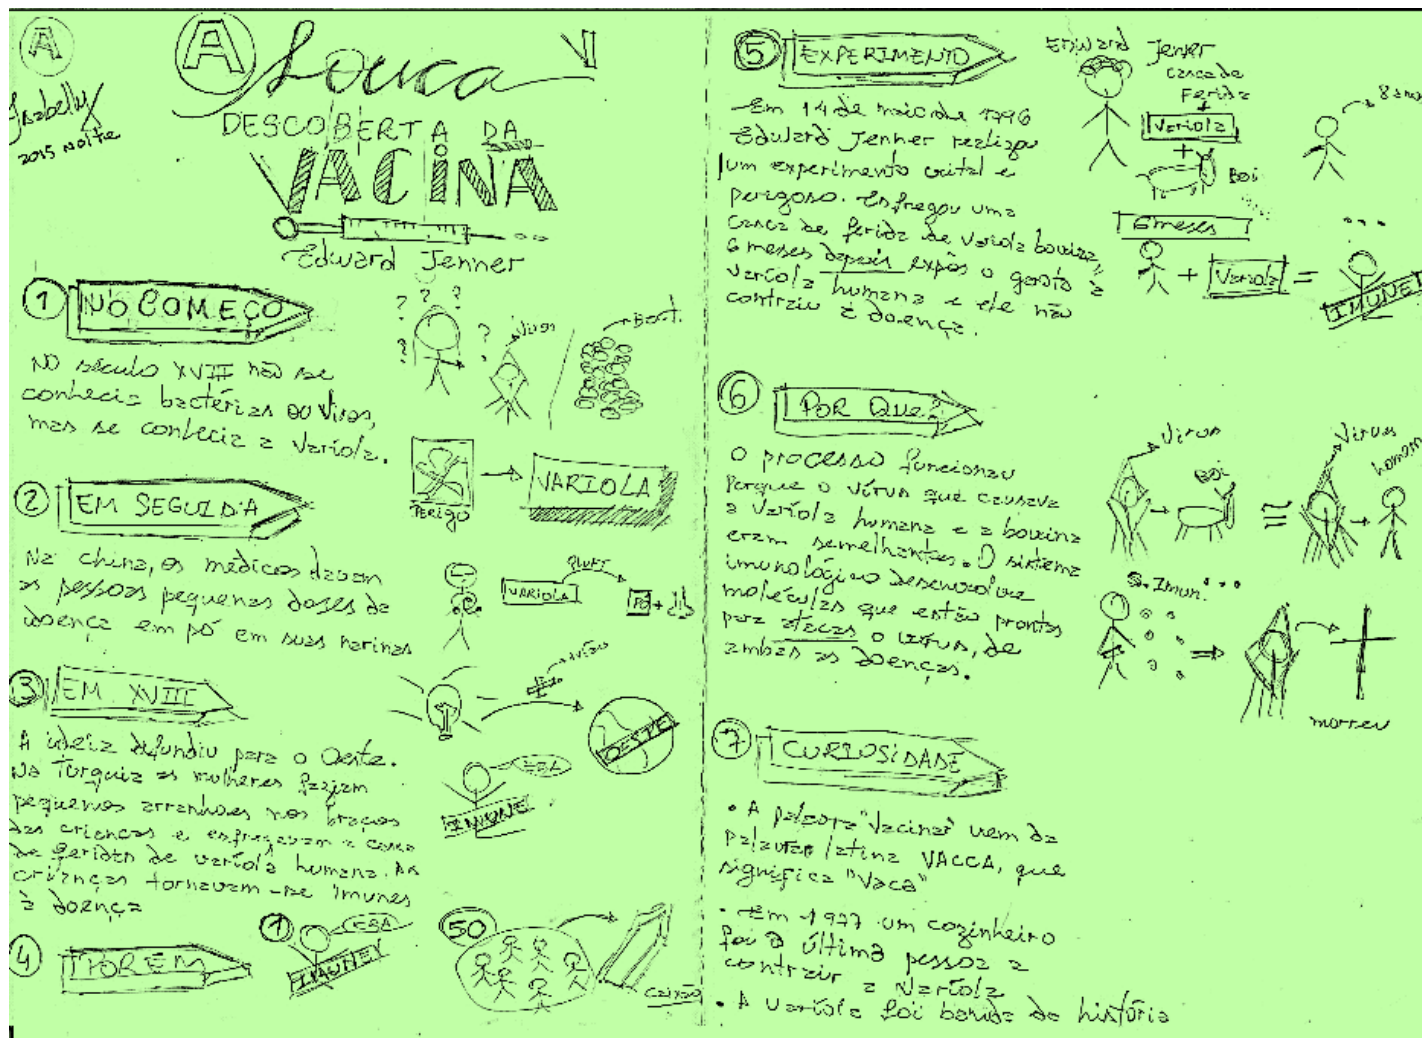 A
Isabelly
2015 NOITE
A Louca
DESCOBERTA DA
VACINA
Edward Jenner
1 NO COMEÇO
NO século XVIII não se
conhecia bactérias ou vírus,
mas se conhecia a varíola.
? ? ? ? ? ?
Vírus
Bact.
PERIGO
VARIOLA
2 EM SEGUIDA
Na china, os médicos davam
as pessoas pequenas doses da
doença em pó em suas narinas
VARIOLA
PLUFT
PÓ +
3 EM XVIII
A ideia difundiu para o Oeste.
Na Turquia as mulheres faziam
pequenos arranhões nos braços
das crianças e esfregavam a casca
de feridas de varíola humana. As
crianças tornavam-se imunes
à doença
OESTE
EBA
IMUNE
4 POREM
1
EBA
IMUNE!
50
caixão
5 EXPERIMENTO
Em 14 de maio de 1796
Edward Jenner realizou
um experimento vital e
perigoso. Esfregou uma
casca de ferida de varíola bovina,
6 meses depois expôs o garoto à
varíola humana e ele não
contraiu a doença.
Edward Jenner
casca de
Ferida
+
Varíola
+
Boi
8 anos
6 meses
...
+ Varíola =
IMUNE!
6 POR QUE?
O processo funcionou
Porque o vírus que causava
a varíola humana e a bovina
eram semelhantes. O sistema
imunológico desenvolve
moléculas que estão prontas
para atacar o vírus, de
ambas as doenças.
Vírus
Boi
=
Vírus
homem
S. Imun.
morreu
7 CURIOSIDADE
• A palavra "Vacina" vem da
palavra latina VACCA, que
significa "Vaca"
• Em 1977 um cozinheiro
foi a última pessoa a
contrair a Varíola
• A varíola foi banida da história